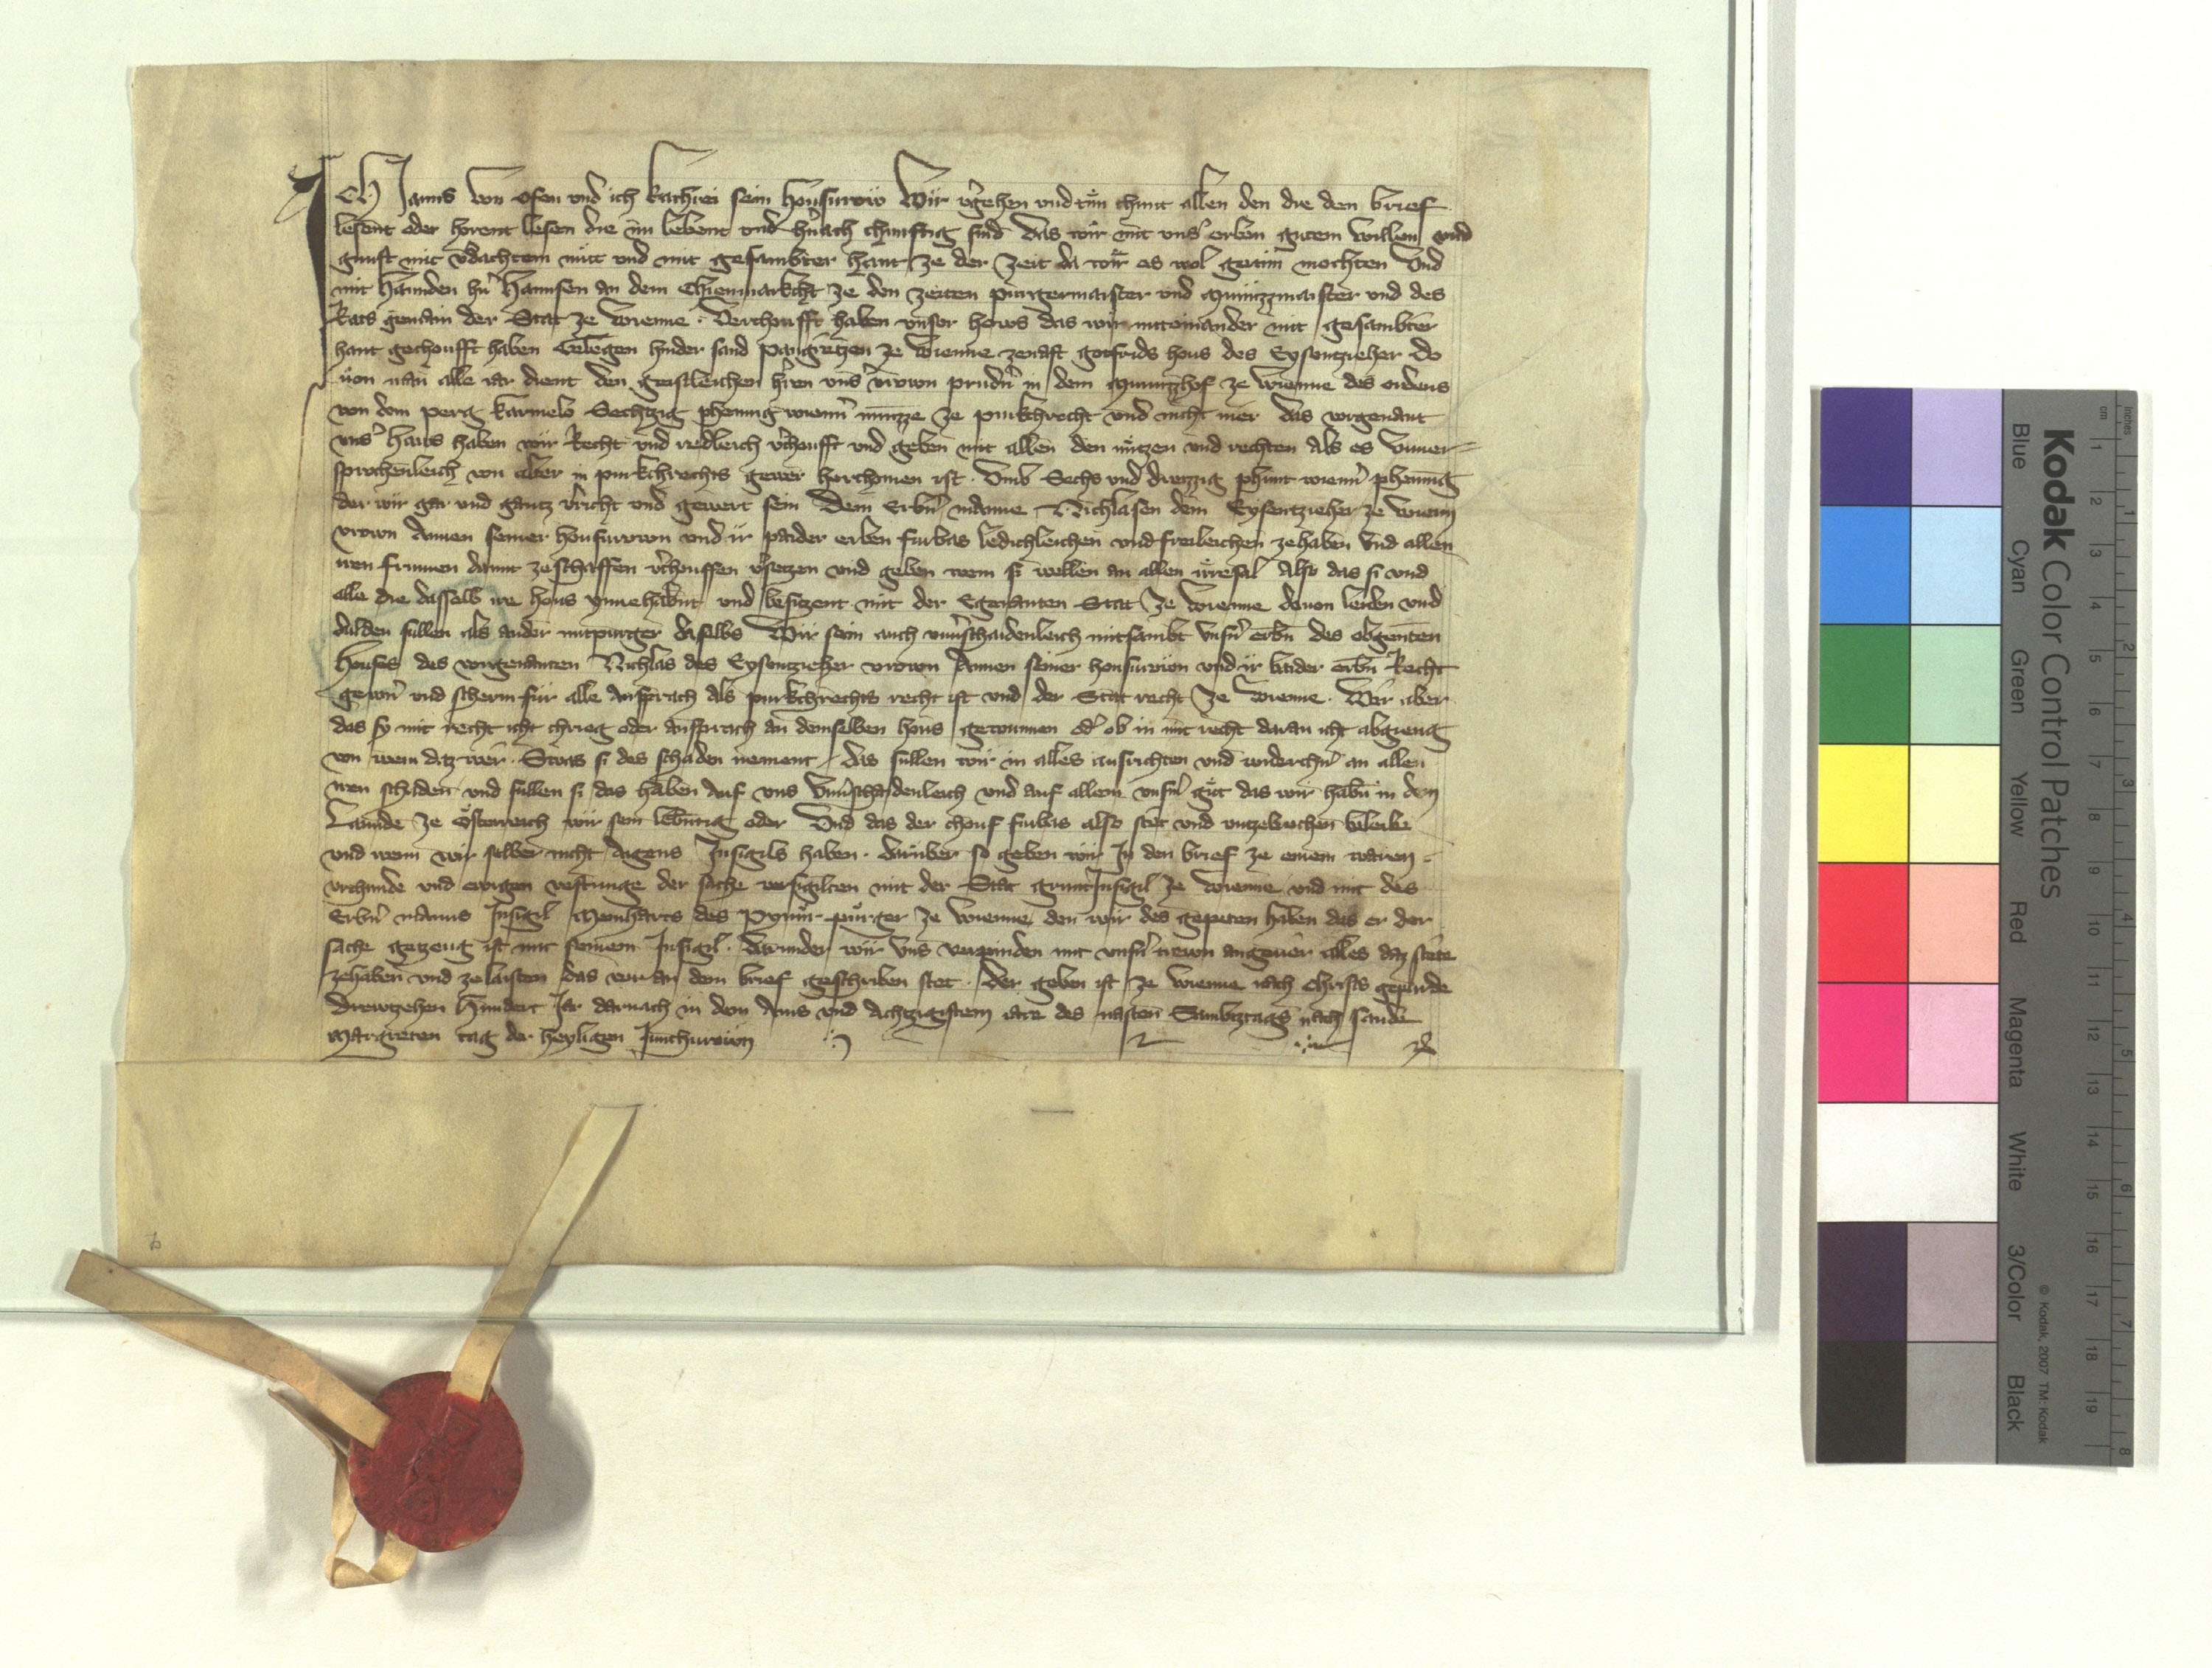 ICH Janns von Ofen und ich kathrei sein housurow Wir v'gehen und tůn chunt allen den die den brief
lesent oder horent lesen die nu lebent und h'nach chunftig sind das wir mit uns' erben gutem willen und
gunst mit v'dachtem můt und mit gesambter hant ze der zeit da wir es wol getůn mochten Und
mit handen h'n Hannsen an dem Chienmarkcht ze den zeiten purgermaister und Munizzmaister und des
Rats gemain der Stat ze wienne Verchoufft haben unser hows das wir miteinander mit gesambter
hant gechoufft haben Gelegen hinder sand Pangretzen ze wienne zenast gotfrids hous des Eysentzieher Do
uon man alle iar dient den geistleichen h'ren uns' vrown prud'n in dem Munizzhof ze wienne des ordens
von dem perg karmelo Sechtzig phennig wienn' munizze ze purkchrecht und nicht mer das vorgenant
uns' haws haben wir Recht und redleich v'choufft und geben mit allen den nůtzen und rechten als es Unuer-
sprochenleich von alter in purkchrechts gewer herchomen ist Umb Sechs und dreizzig phunt wienn' phennig
der wir gar und gantz v'richt und gewert sein Dem Erb'n manne Nichlasen dem Eysentzieher ze wienn
vrown Annen seiner housurown und ir paider erben furbas ledichleichen und freileichen zehaben Und allen
iren frumen damit zeschaffen v'chouffen v'setzen und geben wem si wellen an allen irresal Also das si und
alle die dasselb ir hous ynnehabent und besizent mit der Egenanten Stat ze wienne dauon leiden und
dulden sullen als ander mitpurger daselbs Wir sein auch unu'schaidenleich mitsambt uns'n erben des obgenten
houses des vorgenanten Nichlas des Eysentzieher vrown Annen seiner housurown und ir baider erben Recht
gewern und scherm fur alle Ansprach als purkchrechts recht ist und der Stat recht ze wienne Wer aber
das sy mit recht icht chrieg oder ansprach an demselben hous gewunnen od' ob in mit recht daran icht abgieng
von wem daz wer Swas si des schaden nement das sullen wir in alles ausrichten und widerchern an allen
iren schaden und sullen si das haben auf uns Unu'schaidenleich und auf allem uns'm gůt das wir haben in dem
Lannde ze Osterreich wir sein lebentig oder Und das der chouf furbas also stet und unzebrochen beleibe
und wenn wir selber nicht Aigens Insigils haben darůber so geben wir In den brief ze einem waren
urchunde und ewigen vestnunge der sache versigilten mit der Stat gruntInsigil ze wienne und mit des
Erb'n manns Insigil Meinharts des purger ze wienne den wir des gepeten haben das er der
sache getzeug ist mit seinem Insigil darunder wir uns verpinden mit uns'n trewn angeuer alles daz stete
zehaben und zelaisten das vor an dem brief geschriben stet Der geben ist ze wienne nach Christs gepurde
drewtzehen hundert Jar darnach in dem Ains und Achtzigistem iare des nasten Sambztags nach sande
Margreten tag der heyligen Junchurown
Kodak Color Control Patches
Blue Cyan Green Yellow Red Magenta White 3/Color Black
© Kodak, 2007 TM: Kodak
Inches 1 2 3 4 5 6 7 8
cm 1 2 3 4 5 6 7 8 9 10 11 12 13 14 15 16 17 18 19